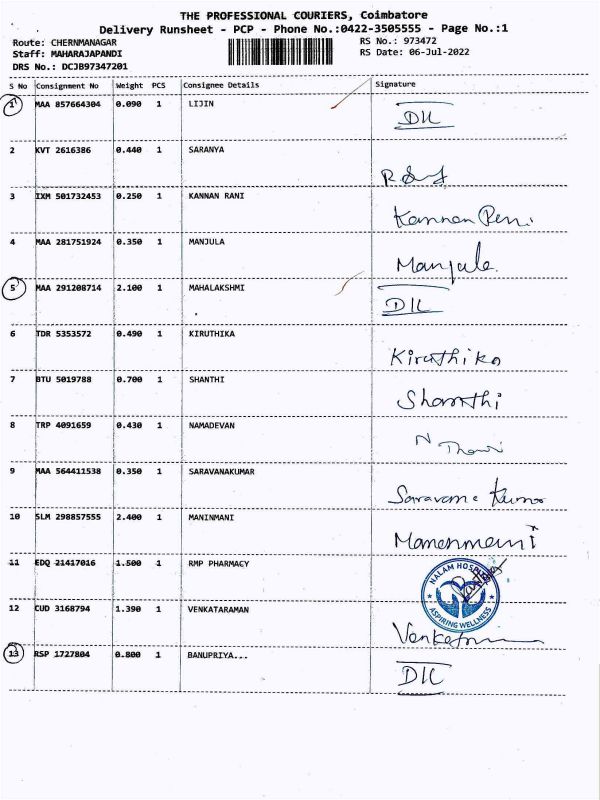 THE PROFESSIONAL COURIERS, Coimbatore
Delivery Runsheet - PCP - Phone No.:0422-3505555 - Page No.:1
Route: CHERNMANAGAR RS No.: 973472
Staff: MAHARAJAPANDI RS Date: 06-Jul-2022
DRS No.: DCJB97347201
S No Consignment No Weight PCS Consignee Details Signature
1 MAA 857664304 0.090 1 LIJIN
2 KVT 2616386 0.440 1 SARANYA
3 IXM 501732453 0.250 1 KANNAN RANI
Kannan
4 MAA 281751924 0.350 1 MANJULA
Manjula
5 MAA 291208714 2.100 1 MAHALAKSHMI
6 TDR 5353572 0.490 1 KIRUTHIKA
Kiruthika
7 BTU 5019788 0.700 1 SHANTHI
Shanthi
8 TRP 4091659 0.430 1 NAMADEVAN
N
9 MAA 564411538 0.350 1 SARAVANAKUMAR
Saravana Kumar
10 SLM 298857555 2.400 1 MANINMANI
11 EDQ 21417016 1.500 1 RMP PHARMACY
NALAM HOSPITAL
ASPIRING WELLNESS
12 CUD 3168794 1.390 1 VENKATARAMAN
13 RSP 1727804 0.800 1 BANUPRIYA...